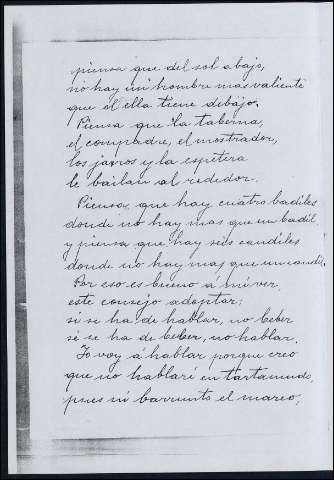 piensa que del sol abajo,
no hay un hombre mas valiente
que el ella tiene debajo.
Piensa que la taberna,
el compadre, el mostrador,
los jarros y la espetera
le bailan al rededor.
Piensa, que hay cuatro badiles
donde no hay mas que un badil
y piensa que hay seis candiles
donde no hay mas que un candil.
Por eso es bueno á mi ver
este consejo adoptar;
si se ha de hablar, no beber
si se ha de beber, no hablar.
Yo voy á hablar, porque creo
que no hablaré en tartamudo,
pues ni barrunto el mareo,